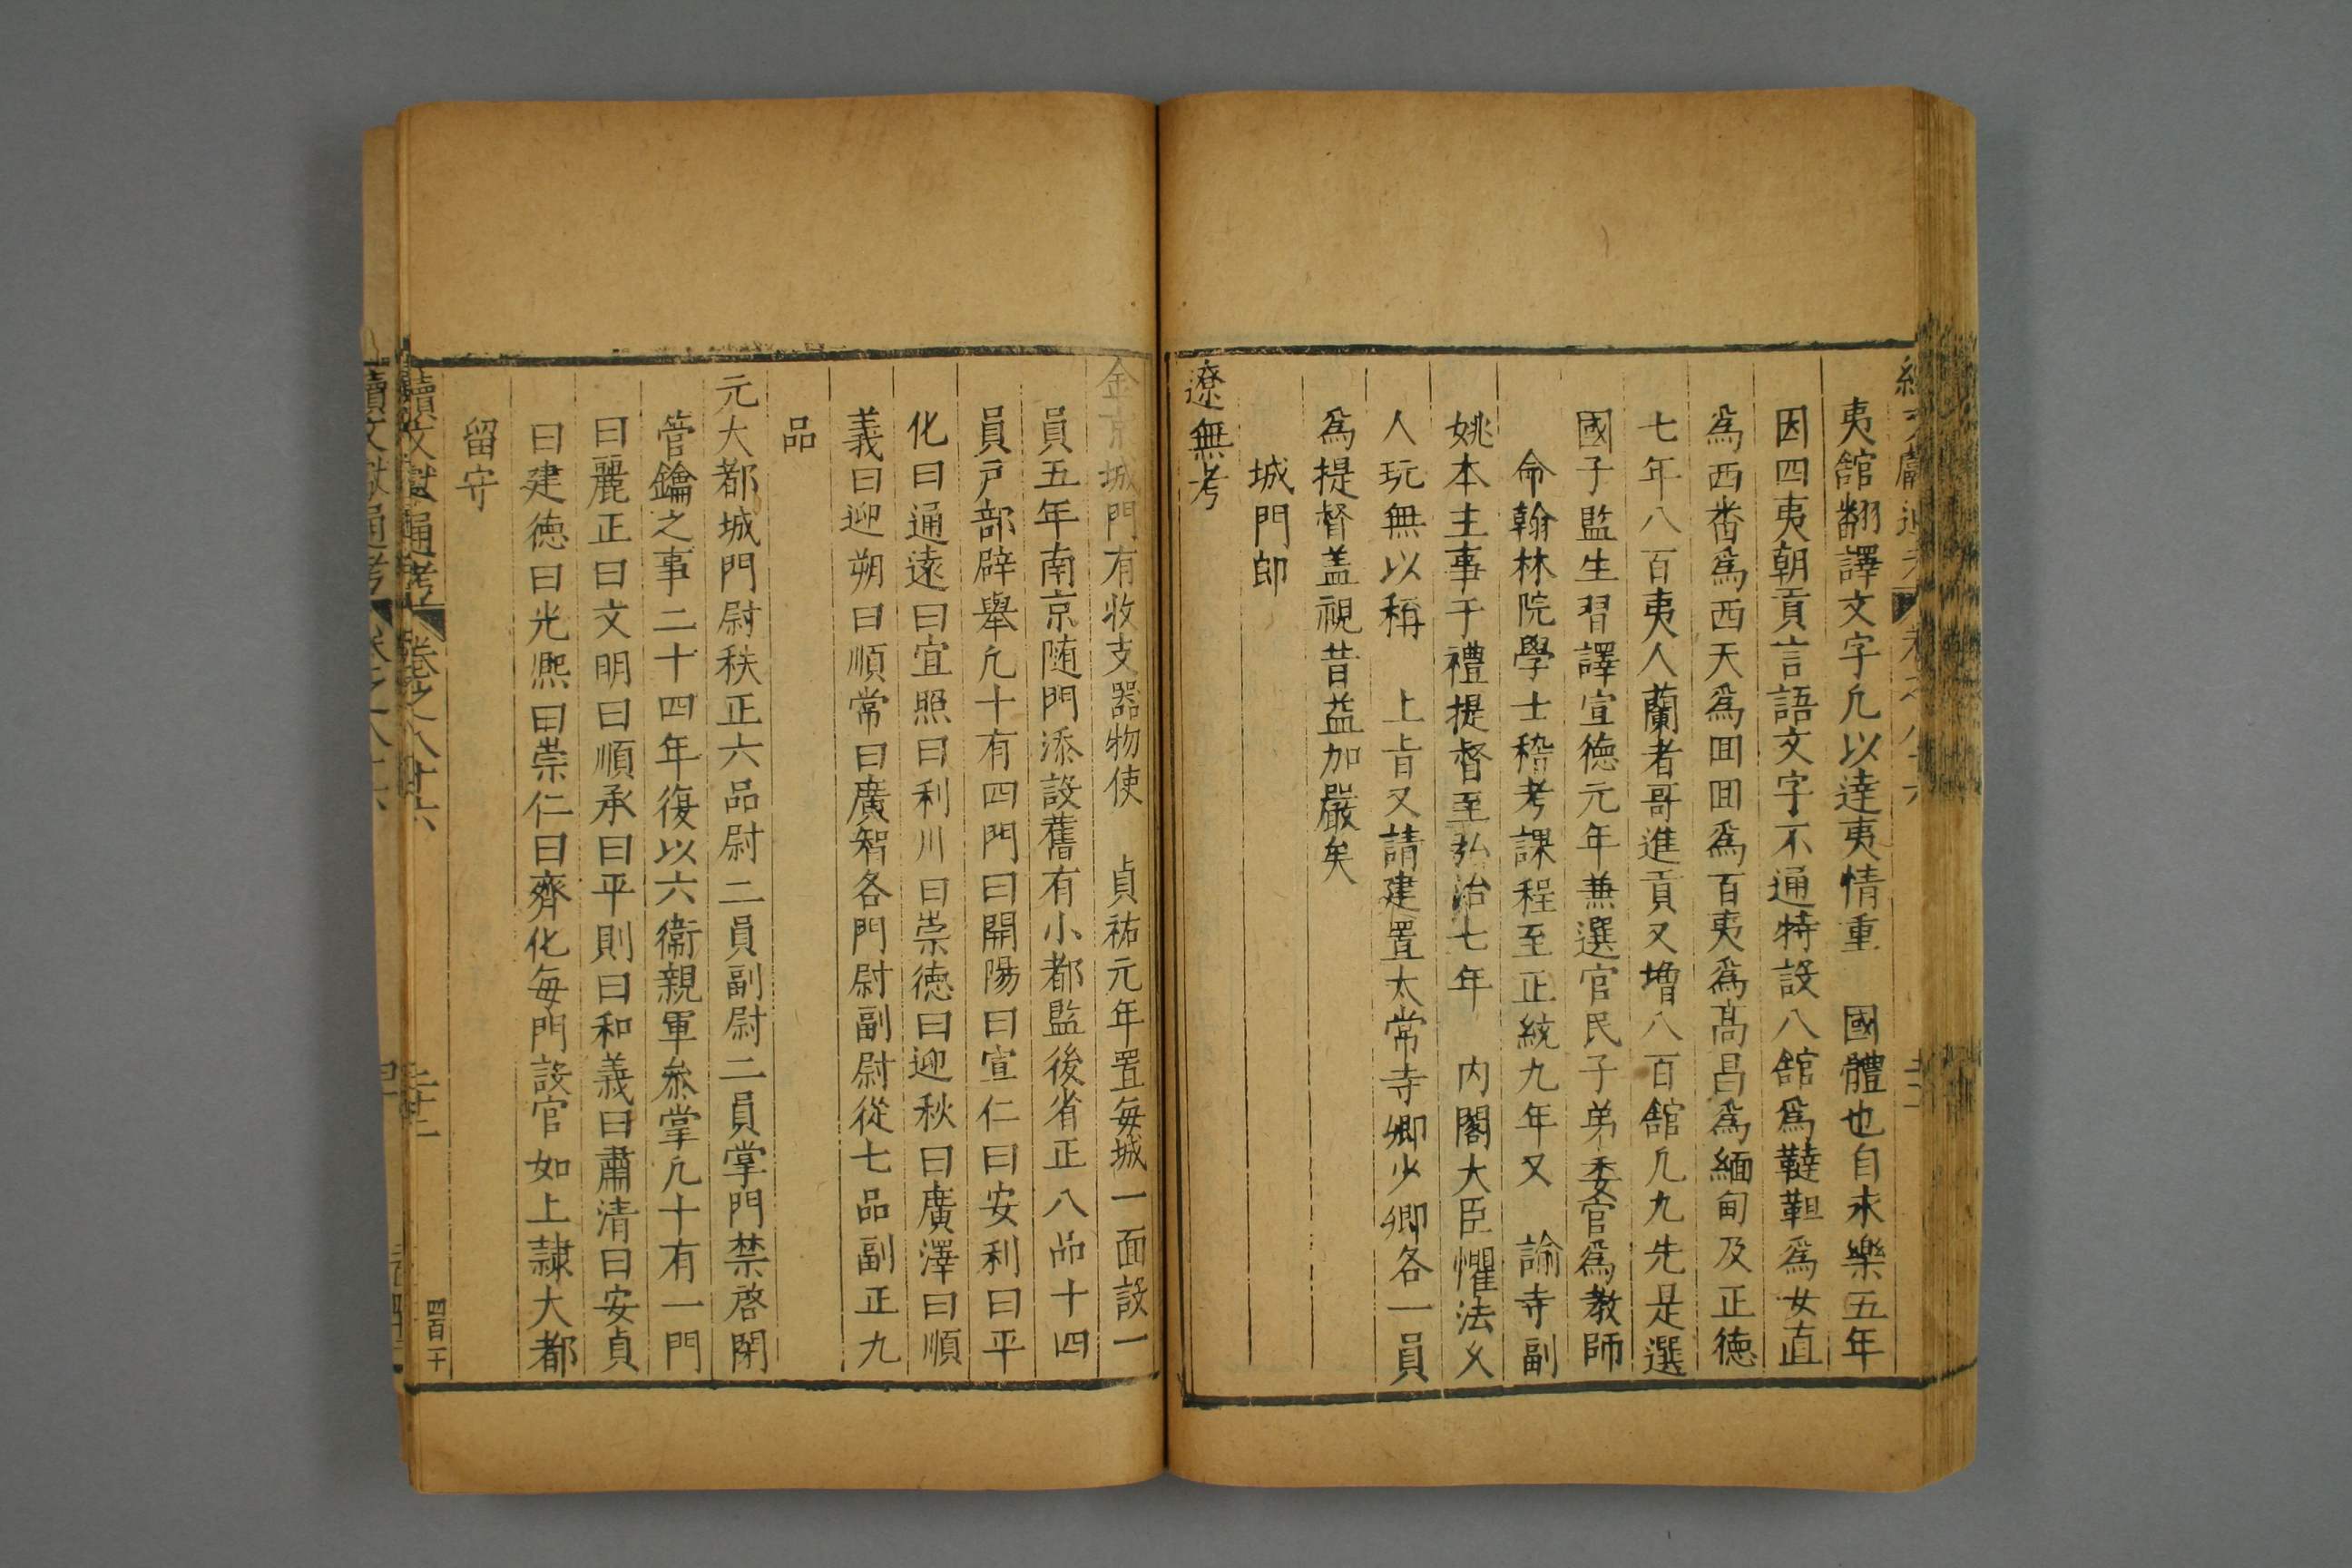 夷舘翻譯文字凢以逹夷情重　國體也自永樂五年
因四夷朝貢言語文字不通特設八舘爲韃靼爲女直
爲西畨爲西天爲囬囬爲百夷爲髙昌爲緬甸及正德
七年八百夷人蘭者哥進貢又増八百舘凢九先是選
國子監生習譯宣德元年兼選官民子弟委官爲教師
命翰林院學士稽考課程至正統九年又　諭寺副
姚本主事于禮提督至弘治七年　内閣大臣懼法乆
人玩無以稱　上㫖又請建置太常寺卿少卿各一員
爲提督盖視昔益加嚴矣
城門郎
遼無考
金京城門有收支器物使　貞祐元年置每城一面設一
員五年南京随門添設舊有小都監後省正八品十四
員戶部辟舉凢十有四門曰開陽曰宣仁曰安利曰平
化曰通遠曰宜照曰利川曰崇德曰迎秋曰廣澤曰順
義曰迎朔曰順常曰廣智各門尉副尉從七品副正九
品
元大都城門尉秩正六品尉二員副尉二員掌門禁啓閉
管鑰之事二十四年復以六衞親軍叅掌凢十有一門
曰麗正曰文明曰順承曰平則曰和義曰肅清曰安貞
曰建德曰光熈曰崇仁曰齊化每門設官如上隷大都
留守
續文獻通考　卷之八十六
四百二十